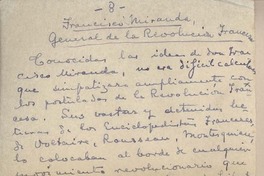 - 8 -
Francisco Miranda,
General de la Revolución Francesa
Conocidas las ideas de don Fran
cisco Miranda, no era difícil calcular
que simpatizara ampliamente con
los postulados de la Revolución Fran
cesa. Sus vastas y detenidas lec
turas de los Enciclopedistas Franceses
de Voltaire, Rousseau, Montesquieu
lo colocaban al borde de cualquier
movimiento revolucionario que